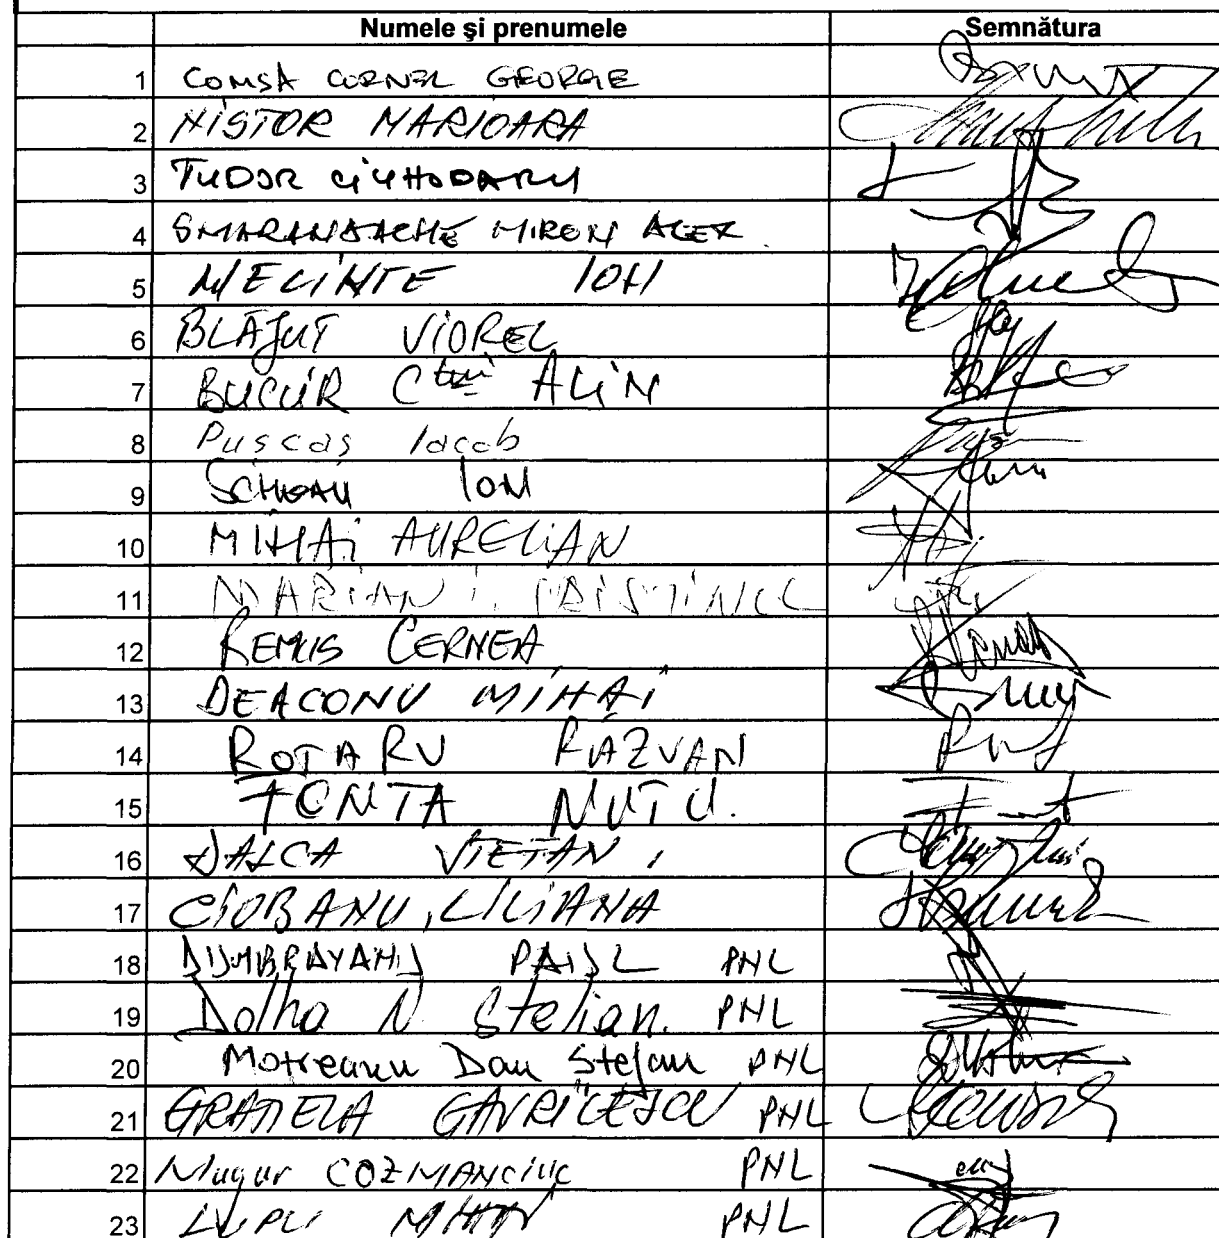 Numele şi prenumele Semnătura
1 COMSA CORNEL GEORGE
2 NISTOR MARIOARA
3 TUDOR CIUHODARU
4 SMARANDACHE MIRON ALEX.
5 NECINTE ION
6 BLĂJUȚ VIOREL
7 BUCUR C-tin ALIN
8 Puscas Iacob
9 SCHEAU ION
10 MIHAI AURELIAN
11 MARIAN I. CRISTINEL
12 REMUS CERNEA
13 DEACONU MIHAI
14 ROTARU RĂZVAN
15 TONTA NUTU.
16 DALCA VIETAN
17 CIOBANU, LILIANA
18 DUMBRAVANU PAUL PNL
19 Dolha N. Stelian. PNL
20 Motreanu Dan Stefan PNL
21 GRATIELA GAVRILESCU PNL
22 Mugur COZMANCIUC PNL
23 LUPU MIHAI PNL